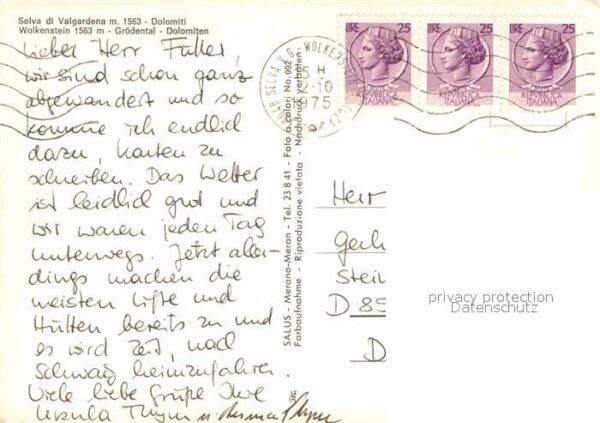 Selva di Valgardena m. 1563 - Dolomiti
Wolkenstein 1563 m - Grödental - Dolomiten
Lieber Herr
wir sind schon ganz
abgewandert und so
komme ich endlich
dazu, Karten zu
schreiben. Das Wetter
ist leidlich gut und
wir waren jeden Tag
unterwegs. Jetzt aller-
dings machen die
meisten Lifte und
Hütten bereits zu und
es wird Zeit, nach
heimzufahren.
Viele liebe Grüße Ihre
Ursula
SALUS - Merano-Meran - Tel. 23 8 41 - Foto a colori No. 992
Farbaufnahme - Riproduzione vietata - Nachdruck verboten
SELVA V. G. - WOLKENS
-10
1975
LIRE 25
REPUBBLICA
ITALIANA
LIRE 25
REPUBBLICA
ITALIANA
LIRE 25
REPUBBLICA
ITALIANA
Herr
Gerh
Stei
D 85
D
privacy protection
Datenschutz